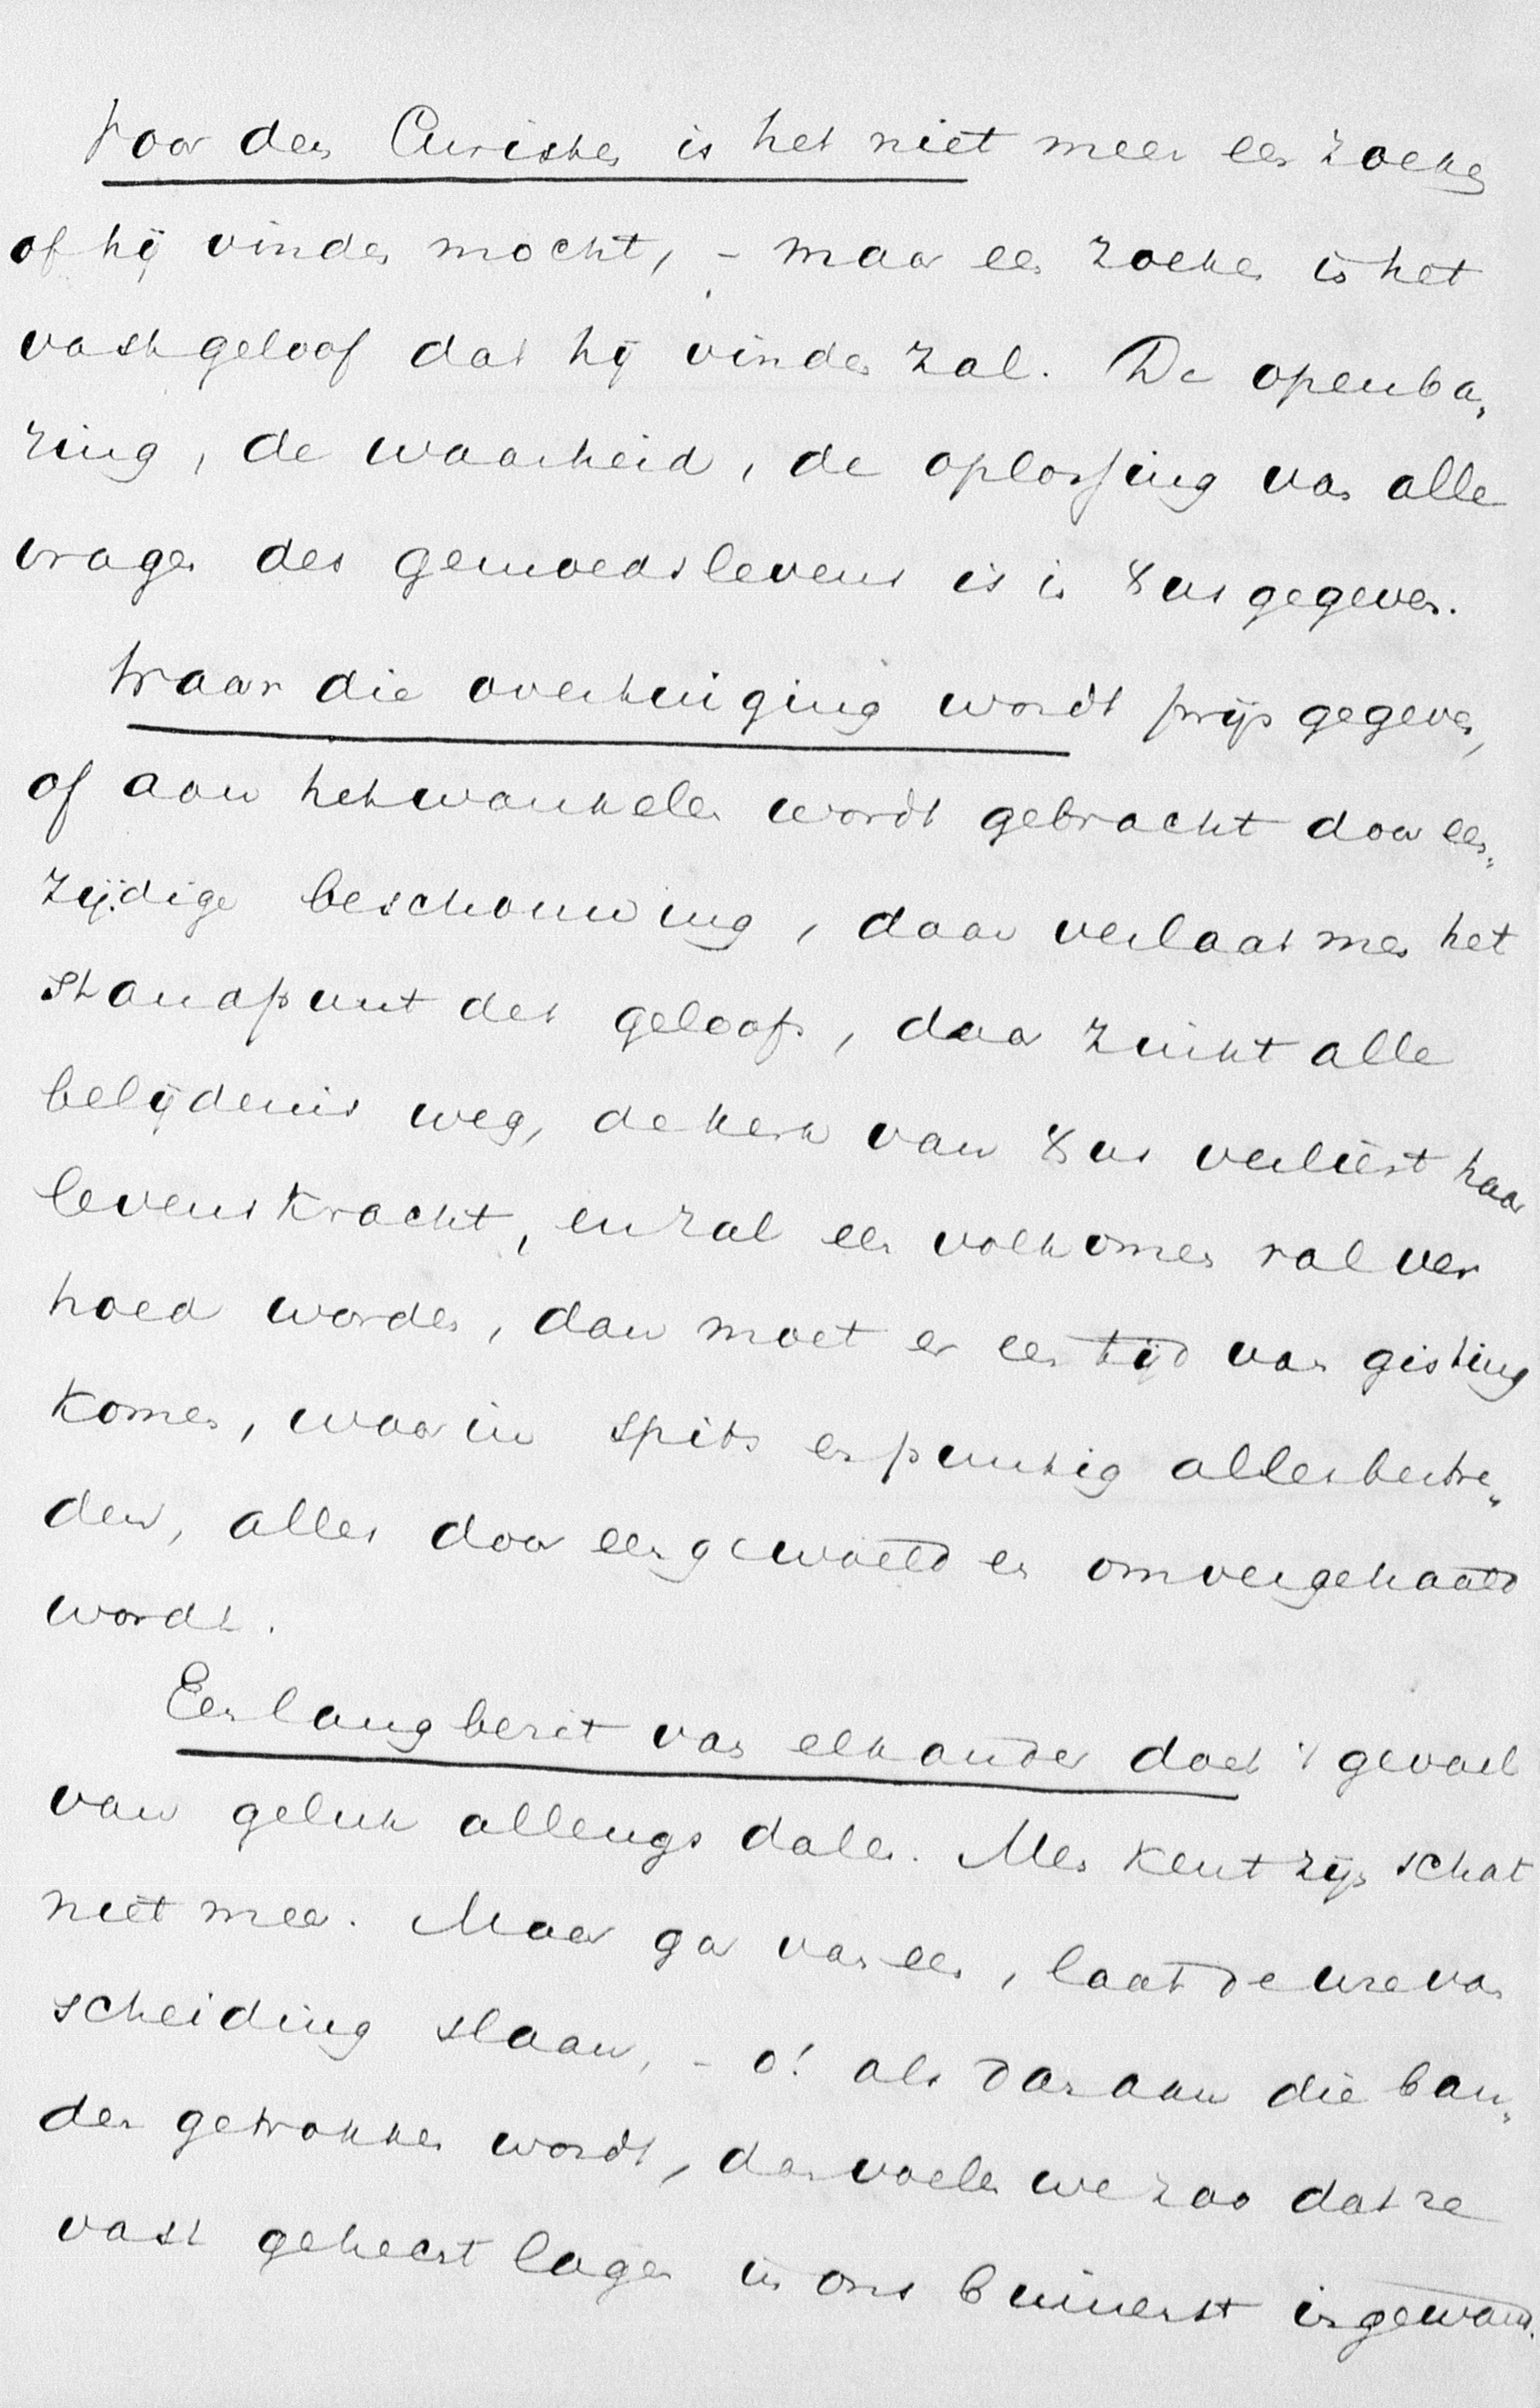 Voor den Christen is het niet meer een zoeken
of hij vinden mocht, – maar een zoeken in het
vast geloof dat hij vinden zal. De openba„
ring, de waarheid, de oplossing van alle
vragen des gemoedslevens is in Xus gegeven.
Waar die overtuiging wordt prijs gegeven,
of aan het wankelen wordt gebracht door een„
zijdige beschouwing, daar verlaat men het
standpunt des geloofs, daar zinkt alle
belijdenis weg, de kerk van Xus verliest haar
levenskracht, en zal een volkomen val ver
hoed worden, dan moet er een tijd van gisting
komen, waarin spits en puntig alles bestre„
den, alles door een gewoeld en omvergehaald
wordt.
Een lang bezit van elkander doet 't gevoel
van geluk allengs dalen. Men kent zijn schat
niet meer. Maar ga van een, laat de ure van
scheiding slaan, – o! als dan aan die ban„
den getrokken wordt, dan voelen we zoo dat ze
vast gehecht lagen in ons binnenst ingewand.